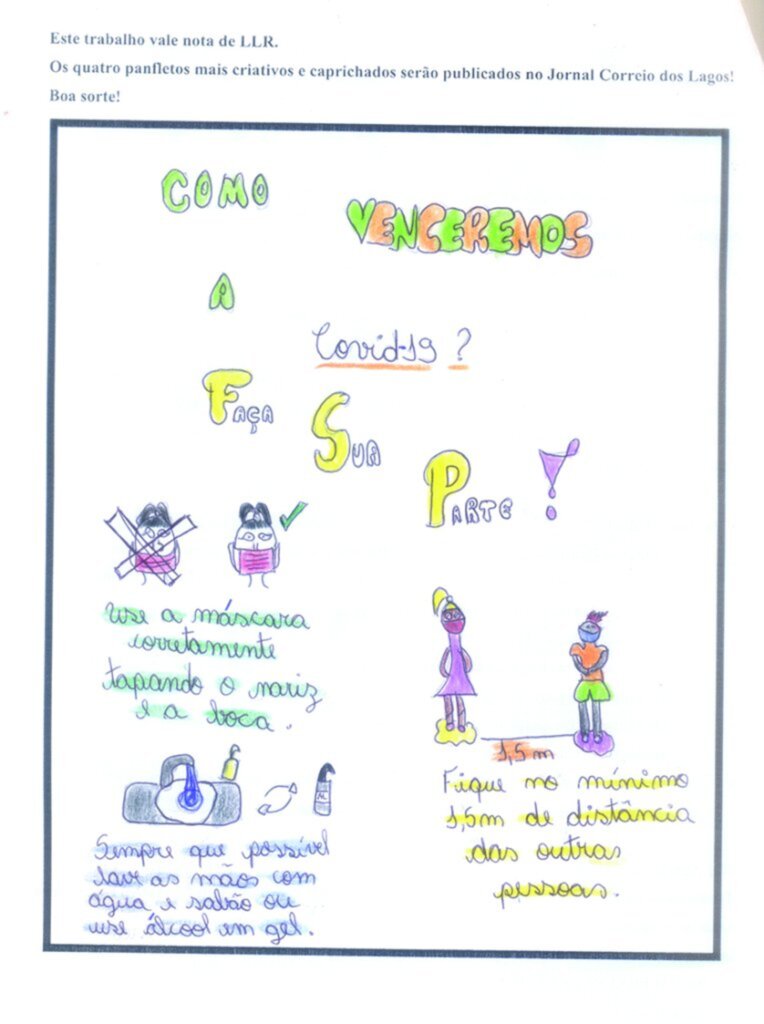 Este trabalho vale nota de LLR.
Os quatro panfletos mais criativos e caprichados serão publicados no Jornal Correio dos Lagos!
Boa sorte!
COMO
VENCEREMOS
A
Covid-19 ?
FAÇA
SUA
PARTE !
Use a máscara
corretamente
tapando o nariz
e a boca.
1,5 m
Fique no mínimo
1,5m de distância
das outras
pessoas.
Sempre que possível
lave as mãos com
água e sabão ou
use álcool em gel.